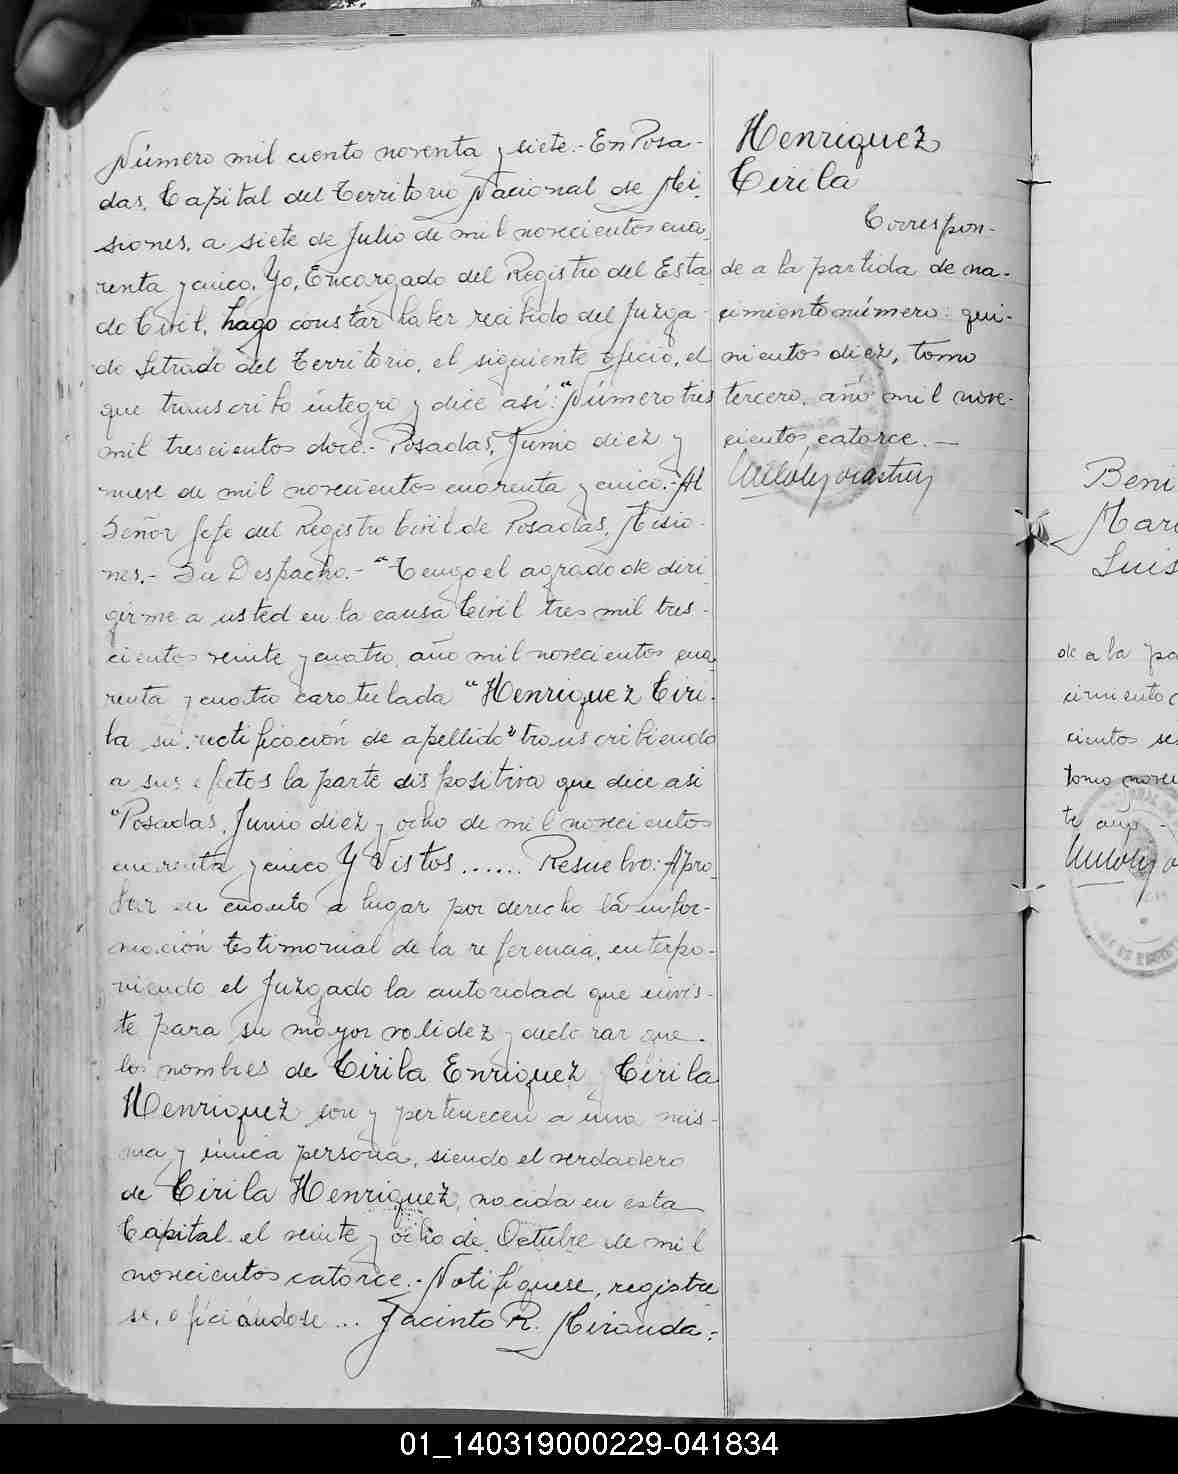 Número mil ciento noventa y siete.- En Posa-
das, Capital del Territorio Nacional de Mi-
siones, a siete de Julio de mil novecientos cua-
renta y cinco, Yo, Encargado del Registro del Esta
do Civil, hago constar haber recibido del Juzga-
do Letrado del Territorio, el siguiente oficio, el
que transcribo íntegro y dice así: "Número tres
mil trescientos doce.- Posadas, Junio diez y
nueve de mil novecientos cuarenta y cinco.- Al
Señor Jefe del Registro Civil de Posadas, Misio-
nes.- Su Despacho.- "Tengo el agrado de diri-
girme a usted en la causa Civil tres mil tres-
cientos veinte y cuatro, año mil novecientos cua
renta y cuatro caratulada "Henriquez Ciri-
la su rectificación de apellido" transcribiendo
a sus efectos la parte dispositiva que dice asi
"Posadas, Junio diez y ocho de mil novecientos
cuarenta y cinco Y Vistos...... Resuelvo: Apro-
bar en cuanto a lugar por derecho la infor-
mación testimonial de la referencia, interpo-
niendo el Juzgado la autoridad que invis-
te para su mayor validez y declarar que
los nombres de Cirila Enriquez y Cirila
Henriquez son y pertenecen a una mis-
ma y única persona, siendo el verdadero
de Cirila Henriquez, nacida en esta
Capital el veinte y ocho de Octubre de mil
novecientos catorce.- Notifíquese, registre
se, oficiándose... Jacinto R. Miranda.-
Henriquez
Cirila
Correspon-
de a la partida de na-
cimiento número: qui-
nientos diez, tomo
tercero, año mil nove-
cientos catorce.-
Beni
Mari
Luis
de a la pa
cimiento
cientos se
tomo nove
te año.-
01_140319000229-041834